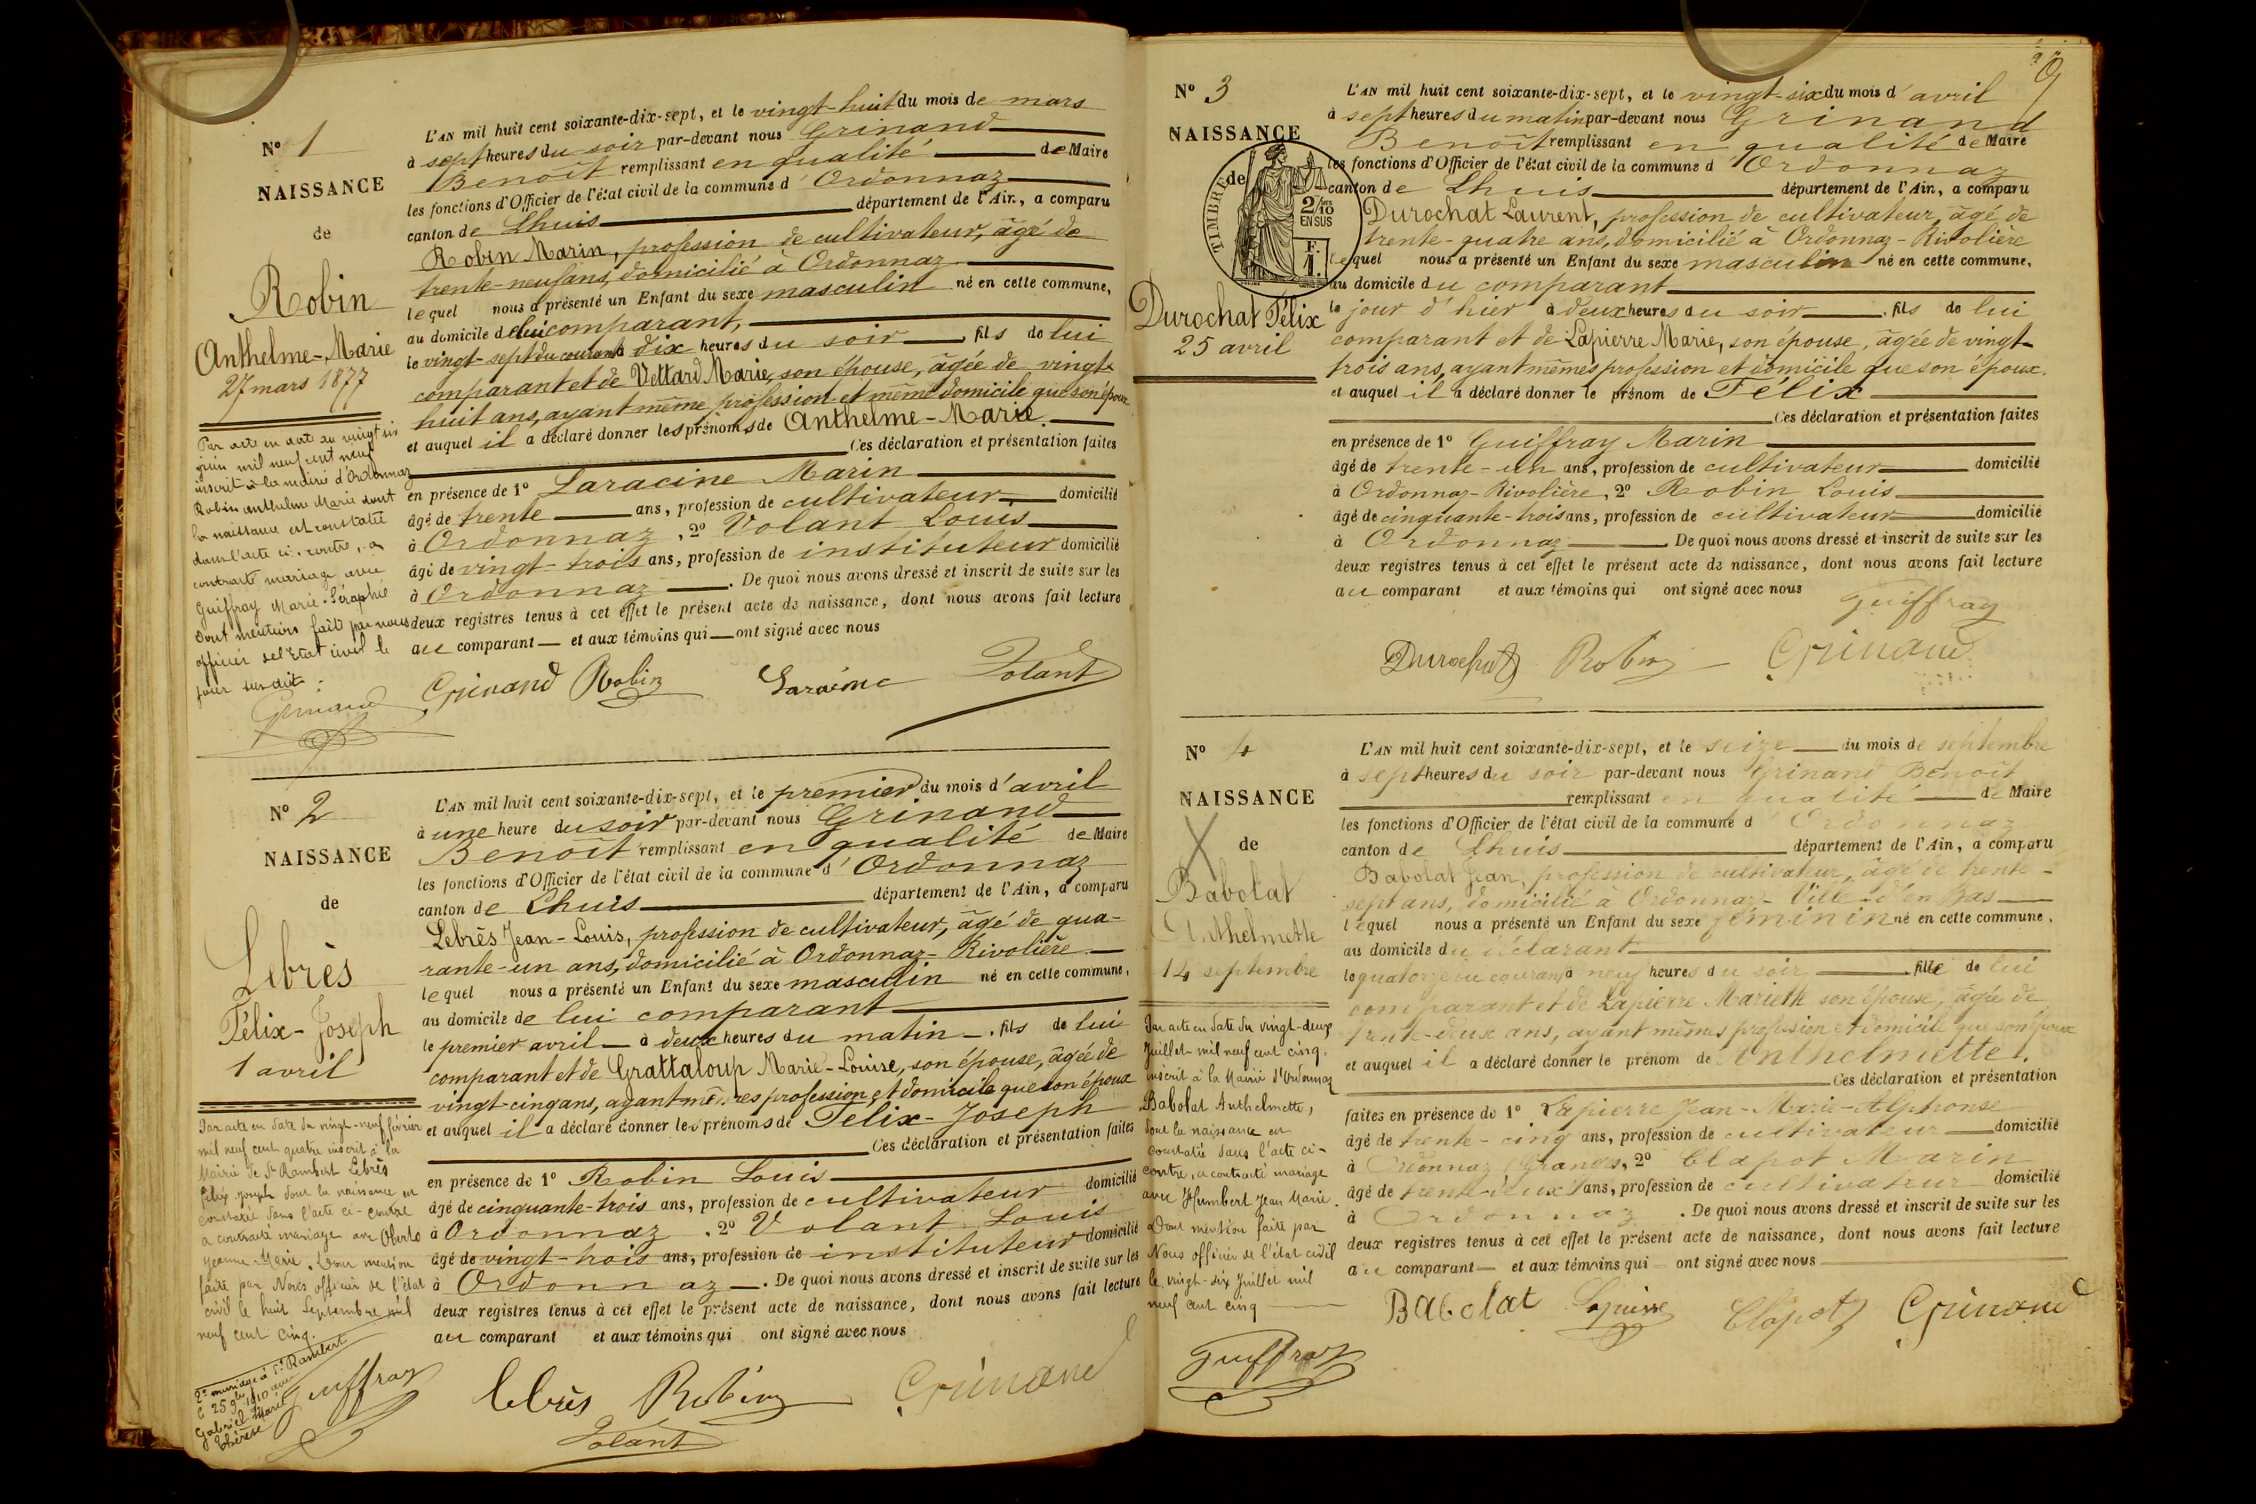 Nº 1
NAISSANCE
de
Robin
Anthelme-Marie
27 mars 1877
Par acte en date du vingt six
juin mil neuf cent neuf
inscrit à la mairie d'Ordonnaz
Robin Anthelme Marie dont
la naissance est constatée
dans l'acte ci-contre, a
contracté mariage avec
Guiffray Marie-Séraphie
Dont mention faite par nous
officier de l'Etat civil le
jour susdit.
L'AN mil huit cent soixante-dix-sept, et le vingt-huit du mois de mars
à sept heures du soir par-devant nous Grinand
Benoît remplissant en qualité de Maire
les fonctions d'Officier de l'état civil de la commune d'Ordonnaz
canton de Lhuis département de l'Ain, a comparu
Robin Marin, profession de cultivateur, âgé de
trente-neuf ans, domicilié à Ordonnaz
lequel nous a présenté un Enfant du sexe masculin né en cette commune,
au domicile de lui comparant,
le vingt-sept du courant à dix heures du soir, fils de lui
comparant et de Vettard Marie, son épouse, âgée de vingt-
huit ans, ayant même profession et même domicile que son époux
et auquel il a déclaré donner les prénoms de Anthelme-Marie.
Ces déclaration et présentation faites
en présence de 1º Laracine Marin
âgé de trente ans, profession de cultivateur domicilié
à Ordonnaz, 2º Volant Louis
âgé de vingt-trois ans, profession de instituteur domicilié
à Ordonnaz. De quoi nous avons dressé et inscrit de suite sur les
deux registres tenus à cet effet le présent acte de naissance, dont nous avons fait lecture
au comparant et aux témoins qui ont signé avec nous
Grinand Robin Laracine Volant
Nº 2
NAISSANCE
de
Lebrès
Félix-Joseph
1 avril
Par acte en date du vingt-neuf février
mil neuf cent quatre inscrit à la
Mairie de St Rambert Lebrès
Félix Joseph dont la naissance est
constatée dans l'acte ci-contre
a contracté mariage avec
Jeanne-Marie. Dont mention
faite par Nous officier de l'état
civil le huit Septembre mil
neuf cent cinq.
2e mariage à St Rambert
Gabriel Marie
Thérèse
Guiffray
L'AN mil huit cent soixante-dix-sept, et le premier du mois d'avril
à une heure du soir par-devant nous Grinand
Benoît remplissant en qualité de Maire
les fonctions d'Officier de l'état civil de la commune d'Ordonnaz
canton de Lhuis département de l'Ain, a comparu
Lebrès Jean-Louis, profession de cultivateur, âgé de qua-
rante-un ans, domicilié à Ordonnaz-Rivolière
lequel nous a présenté un Enfant du sexe masculin né en cette commune,
au domicile de lui comparant
le premier avril à deux heures du matin, fils de lui
comparant et de Grattaloup Marie-Louise, son épouse, âgée de
vingt-cinq ans, ayant mêmes profession et domicile que son époux
et auquel il a déclaré donner les prénoms de Félix-Joseph
Ces déclaration et présentation faites
en présence de 1º Robin Louis
âgé de cinquante-trois ans, profession de cultivateur domicilié
à Ordonnaz, 2º Volant Louis
âgé de vingt-trois ans, profession de instituteur domicilié
à Ordonnaz. De quoi nous avons dressé et inscrit de suite sur les
deux registres tenus à cet effet le présent acte de naissance, dont nous avons fait lecture
au comparant et aux témoins qui ont signé avec nous
Lebrès Robin Grinand
Volant
9
Nº 3
NAISSANCE
de
TIMBRE
2/10
EN SUS
F.
1.
Durochat Félix
25 avril
L'AN mil huit cent soixante-dix-sept, et le vingt-six du mois d'avril
à sept heures du matin par-devant nous Grinand
Benoît remplissant en qualité de Maire
les fonctions d'Officier de l'état civil de la commune d'Ordonnaz
canton de Lhuis département de l'Ain, a comparu
Durochat Laurent, profession de cultivateur, âgé de
trente-quatre ans, domicilié à Ordonnaz-Rivolière
lequel nous a présenté un Enfant du sexe masculin né en cette commune,
au domicile du comparant
le jour d'hier à deux heures du soir, fils de lui
comparant et de Lapierre Marie, son épouse, âgée de vingt-
trois ans, ayant mêmes profession et domicile que son époux.
et auquel il a déclaré donner le prénom de Félix
Ces déclaration et présentation faites
en présence de 1º Guiffray Marin
âgé de trente-un ans, profession de cultivateur domicilié
à Ordonnaz-Rivolière, 2º Robin Louis
âgé de cinquante-trois ans, profession de cultivateur domicilié
à Ordonnaz De quoi nous avons dressé et inscrit de suite sur les
deux registres tenus à cet effet le présent acte de naissance, dont nous avons fait lecture
au comparant et aux témoins qui ont signé avec nous
Guiffray
Durochat Robin Grinand
Nº 4
NAISSANCE
de
Babolat
Anthelmette
14 septembre
Par acte en date du vingt-deux
Juillet mil neuf cent cinq.
inscrit à la Mairie d'Ordonnaz
Babolat Anthelmette,
dont la naissance est
constatée dans l'acte ci-
contre, a contracté mariage
avec Humbert Jean Marie.
Dont mention faite par
Nous officier de l'état civil
le vingt-six Juillet mil
neuf cent cinq
Guiffray
L'AN mil huit cent soixante-dix-sept, et le seize du mois de septembre
à sept heures du soir par-devant nous Grinand Benoît
remplissant en qualité de Maire
les fonctions d'Officier de l'état civil de la commune d'Ordonnaz
canton de Lhuis département de l'Ain, a comparu
Babolat Jean, profession de cultivateur, âgé de trente-
sept ans, domicilié à Ordonnaz-Ville d'en Bas
lequel nous a présenté un Enfant du sexe féminin né en cette commune,
au domicile du déclarant
le quatorze du courant à neuf heures du soir, fille de lui
comparant et de Lapierre Mariette son épouse, âgée de
trente-deux ans, ayant mêmes profession et domicile que son époux
et auquel il a déclaré donner le prénom de Anthelmette.
Ces déclaration et présentation
faites en présence de 1º Lapierre Jean-Marie-Alphonse
âgé de trente-cinq ans, profession de cultivateur domicilié
à Ordonnaz, 2º Clapot Marin
âgé de trente-deux ans, profession de cultivateur domicilié
à Ordonnaz. De quoi nous avons dressé et inscrit de suite sur les
deux registres tenus à cet effet le présent acte de naissance, dont nous avons fait lecture
au comparant et aux témoins qui ont signé avec nous
Babolat Lapierre Clapot Grinand